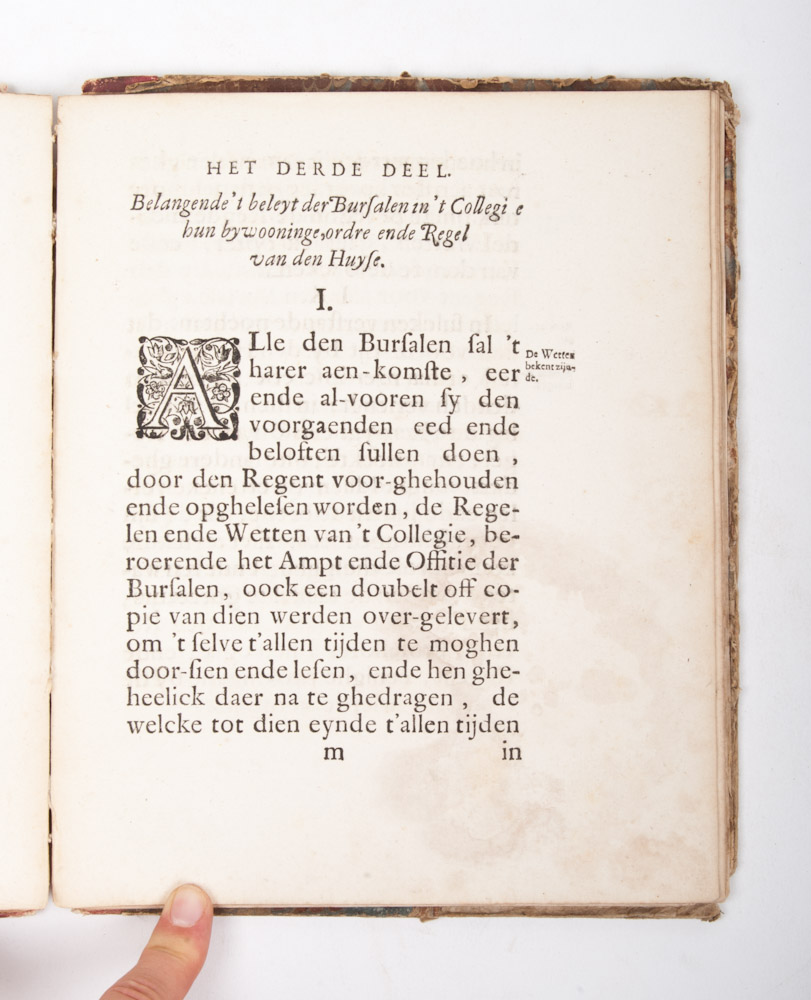 HET DERDE DEEL.
Belangende 't beleyt der Burſalen in 't Collegi e
hun bywooninge, ordre ende Regel
van den Huyſe.
I.
ALle den Burſalen ſal 't
harer aen-komſte, eer
ende al-vooren ſy den
voorgaenden eed ende
beloften ſullen doen,
door den Regent voor-ghehouden
ende opgheleſen worden, de Rege-
len ende Wetten van 't Collegie, be-
roerende het Ampt ende Offitie der
Burſalen, oock een doubelt off co-
pie van dien werden over-gelevert,
om 't ſelve t'allen tijden te moghen
door-ſien ende leſen, ende hen ghe-
heelick daer na te ghedragen, de
welcke tot dien eynde t'allen tijden
m in
De Wetten
bekent zijn-
de.